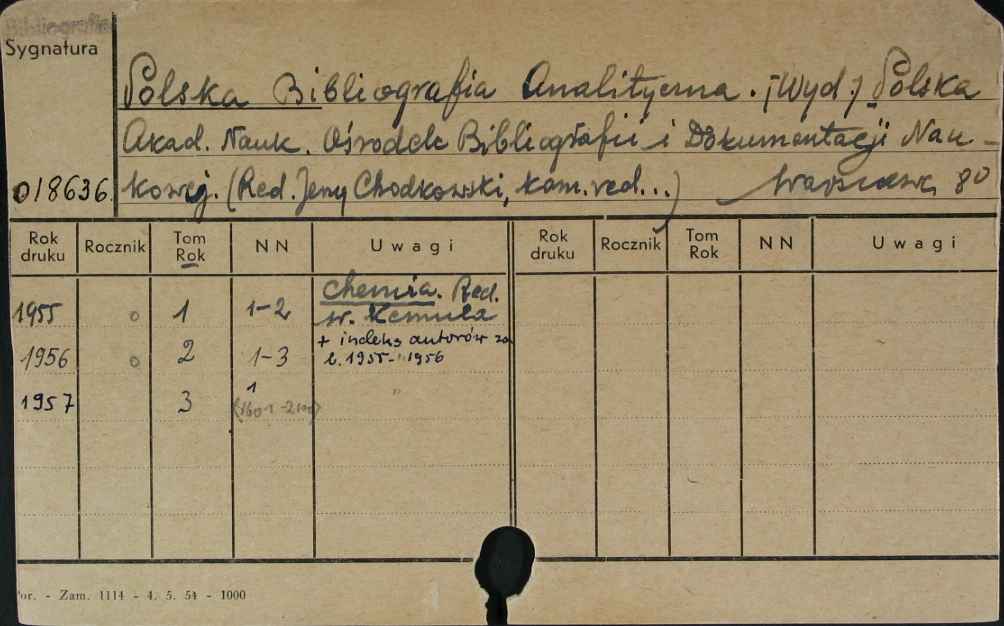 Bibliografia
Sygnatura
Polska Bibliografia Analityczna. [Wyd.] Polska
Akad. Nauk. Ośrodek Bibliografii i Dokumentacji Nau-
018636. kowej. (Red. Jerzy Chodkowski, kom. red...) Warszawa 80
Rok druku Rocznik Tom Rok NN Uwagi Rok druku Rocznik Tom Rok NN Uwagi
Chemia. Red.
1955 o 1 1-2 W. Kemula
+ indeks autorów za
1956 o 2 1-3 l. 1955-1956
1957 3 1 "
(1601-2100)
or. - Zam. 1114 - 4. 5. 54 - 1000